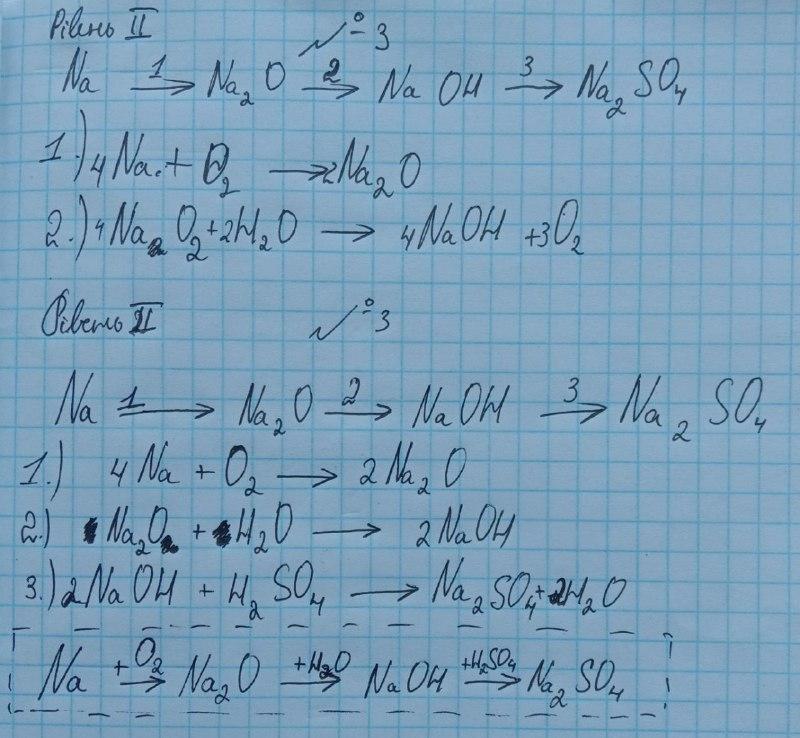 Рівень II
№3
Na 1→ Na₂O 2→ NaOH 3→ Na₂SO₄
1.) 4Na + O₂ → 2Na₂O
2.) 4Na₂O₂ + 2H₂O → 4NaOH + 3O₂
Рівень II
№3
Na 1→ Na₂O 2→ NaOH 3→ Na₂SO₄
1.) 4Na + O₂ → 2Na₂O
2.) Na₂O + H₂O → 2NaOH
3.) 2NaOH + H₂SO₄ → Na₂SO₄ + 2H₂O
Na +O₂→ Na₂O +H₂O→ NaOH +H₂SO₄→ Na₂SO₄